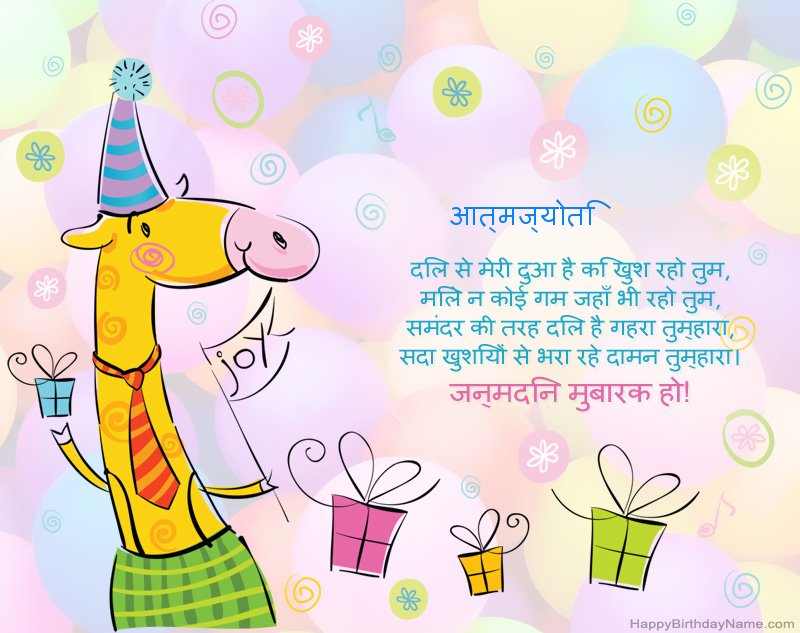 आत्मज्योति
दिल से मेरी दुआ है कि खुश रहो तुम,
मिले न कोई गम जहाँ भी रहो तुम,
समंदर की तरह दिल है गहरा तुम्हारा,
सदा खुशियों से भरा रहे दामन तुम्हारा।
जन्मदिन मुबारक हो!
joy
HappyBirthdayName.com